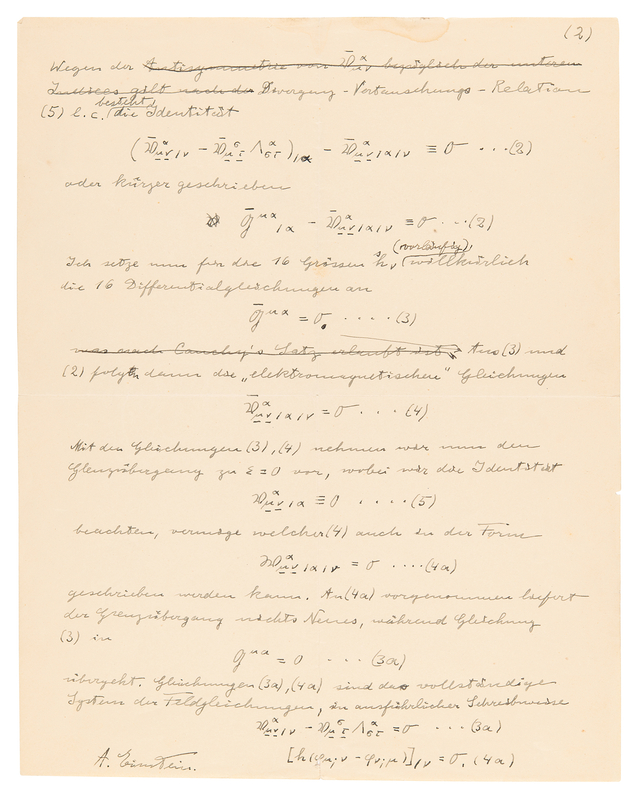 (2)
Wegen der Antisymmetrie von 𝔚̄^α_μν bezüglich der unteren
Indices gilt nach der Divergenz-Vertauschungs-Relation
besteht
(5) l.c. die Identität
(𝔚̄^α_μν/ν − 𝔚̄^σ_μτ Λ^α_στ)/α − 𝔚̄^α_μν/α/ν ≡ 0 ...(2)
oder kürzer geschrieben
𝔊̄^μα/α − 𝔚̄^α_μν/α/ν ≡ 0 ...(2)
(vorläufig)
Ich setze nun für die 16 Grössen ˢh_ν willkürlich
die 16 Differentialgleichungen an
𝔊̄^μα = 0. ....(3)
was nach Cauchy's Satz erlaubt ist. Aus (3) und
(2) folgen dann die „elektromagnetischen" Gleichungen
𝔚̄^α_μν/α/ν = 0 ...(4)
Mit den Gleichungen (3), (4) nehmen wir nun den
Grenzübergang zu ε = 0 vor, wobei wir die Identität
𝔚^α_μν/α ≡ 0 ....(5)
beachten, vermöge welcher (4) auch in der Form
𝔚^α_μν/α/ν = 0 ....(4a)
geschrieben werden kann. An (4a) vorgenommen liefert
der Grenzübergang nichts Neues, während Gleichung
(3) in
𝔊^μα = 0 ...(3a)
übergeht. Gleichungen (3a), (4a) sind das vollständige
System der Feldgleichungen, in ausführlicher Schreibweise
𝔚^α_μν/ν − 𝔚^σ_μτ Λ^α_στ = 0 ...(3a)
[h(φμ;ν − φν;μ)]/ν = 0. (4a)
A. Einstein.